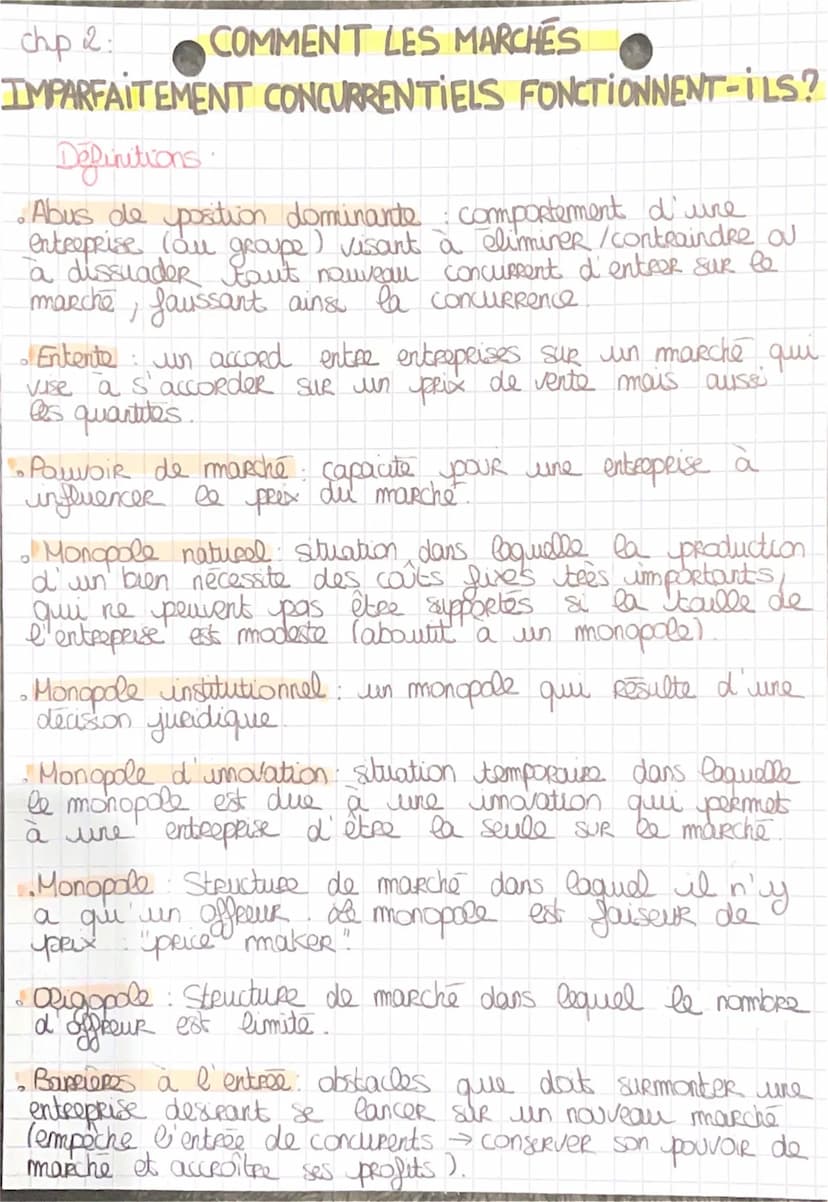 chp 2:
COMMENT LES MARCHÉS
IMPARFAITEMENT CONCURRENTIELS FONCTIONNENT-ILS?
Définitions.
• Abus de position dominante : comportement d'une
entreprise (ou groupe) visant à éliminer /contraindre ou
à dissuader tout nouveau concurrent d'entrer sur le
marché, faussant ainsi la concurrence.
• Entente : un accord entre entreprises sur un marché qui
vise à s'accorder sur un prix de vente mais aussi
les quantités.
• Pouvoir de marché : capacité pour une entreprise à
influencer le prix du marché.
• Monopole naturel : situation dans laquelle la production
d'un bien nécessite des coûts fixes très importants,
qui ne peuvent pas être supportés si la taille de
l'entreprise est modeste (aboutit à un monopole).
• Monopole institutionnel : un monopole qui résulte d'une
décision juridique.
• Monopole d'innovation : situation temporaire dans laquelle
le monopole est due à une innovation qui permet
à une entreprise d'être la seule sur le marché.
• Monopole : Structure de marché dans laquel il n'y
a qu'un offreur. Le monopole est faiseur de
prix : "price maker".
• Oligopole : Structure de marché dans lequel le nombre
d'offreur est limité.
• Barrières à l'entrée : obstacles que doit surmonter une
entreprise désirant se lancer sur un nouveau marché
(empêche l'entrée de concurents → conserver son pouvoir de
marché et accroître ses profits).